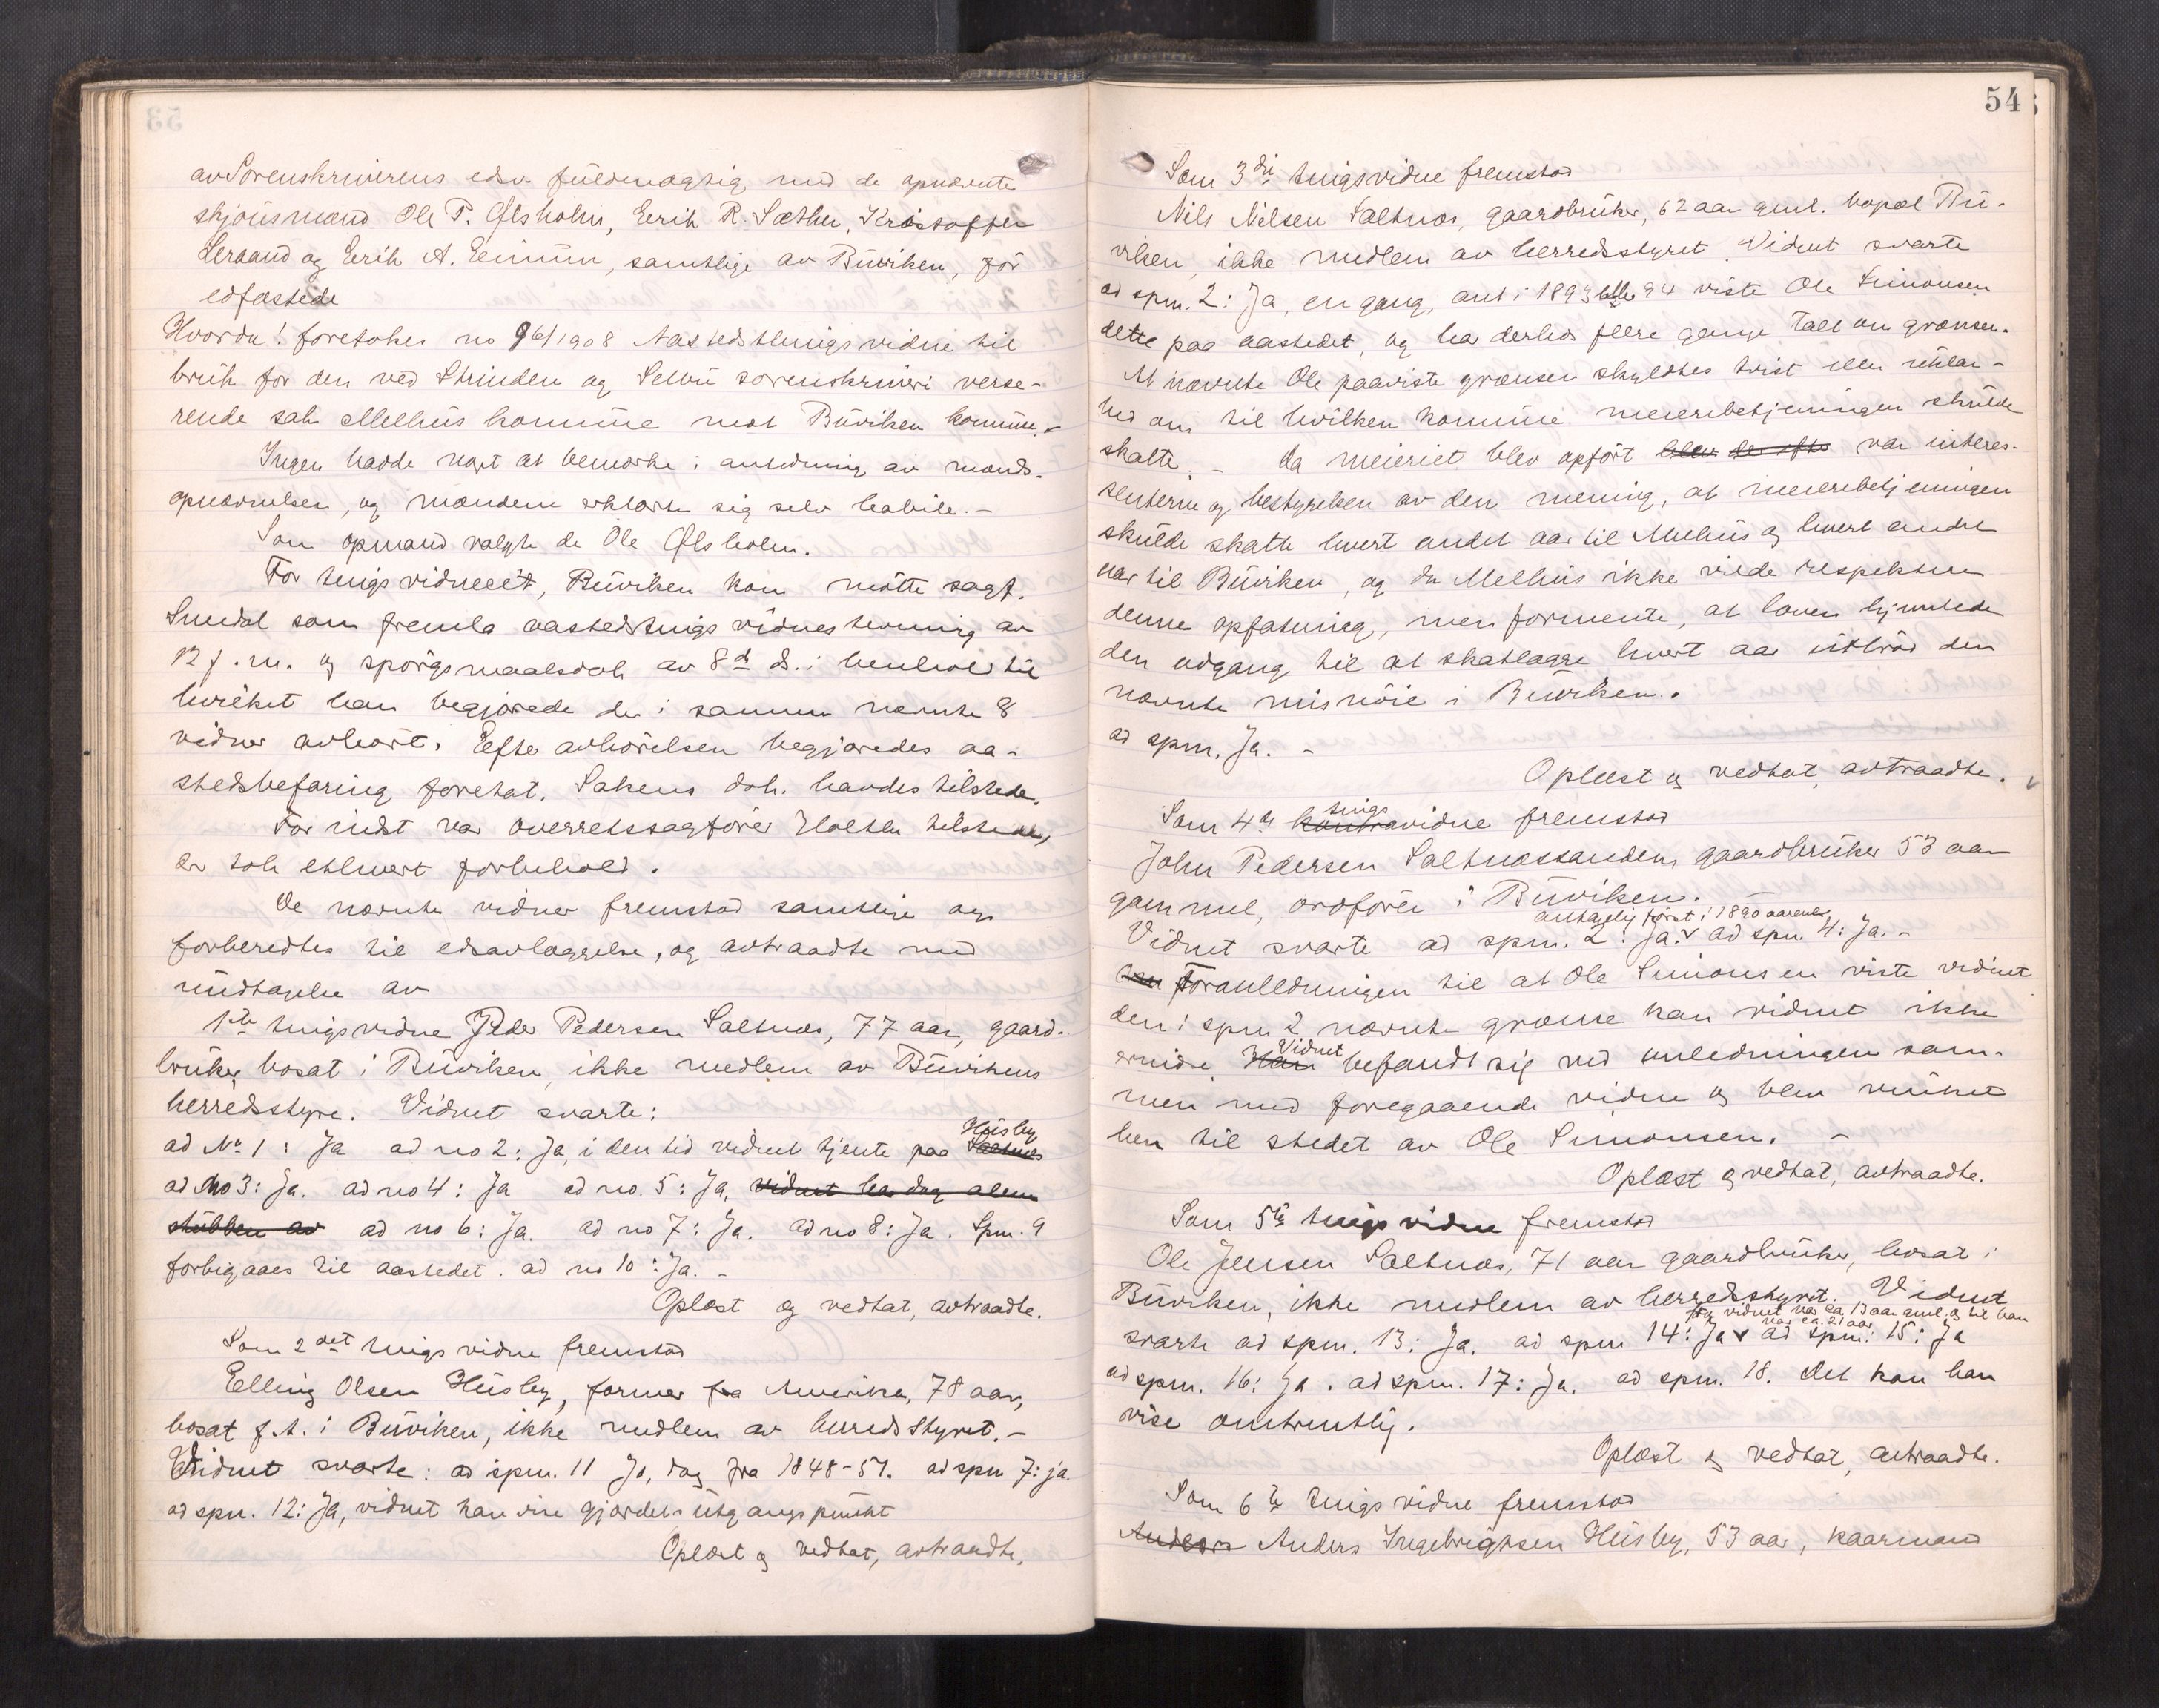 av Sorenskriverens edsv. fuldmægtig med de opnævnte
skjønsmænd Ole P. Ølsholm, Erik R. Sæther, Kristoffer
Leraand og Erik A. Eeimun, samtlige av Buviken, før
edfæstede
Hvorda! foretokes no 96/1908 Aastedstingsvidne til
bruk for den ved Strinden og Selbu sorenskriveri verse-
rende sak Melhus kommune mot Buviken kommune. -
Ingen hadde noget at bemerke i anledning av mands-
opnævnelsen, og mændene erklærte sig selv habile. -
Som opmand valgte de Ole Ølsholm.
For tingsvidnet, Buviken kom møtte sagf.
Smedal som fremla aastedstingsvidnestevning av
12 f. m. og spørgsmaalsdok av 8d ds. i henhold til
hvilket han begjærede de i samme nævnte 8
vidner avhørt. Efter avhørelsen begjæredes aa-
stedsbefaring foretat. Sakens dok. havdes tilstede.
For indst var overretssagfører Holtan tilstede,
der tok ethvert forbehold.
De nævnte vidner fremstod samtlige og
forberedtes til edsavlæggelse, og avtraadte med
undtagelse av
1ste tingsvidne Peder Pedersen Saltnæs, 77 aar, gaard-
bruker, bosat i Buviken, ikke medlem av Buvikens
herredsstyre. Vidnet svarte:
Husby
ad No 1: Ja ad no 2: Ja, i den tid vidnet tjente paa Saltnæs
ad No 3: Ja. ad no 4: Ja ad no. 5: Ja, vidnet har dog alene
stubben av ad no 6: Ja. ad no 7: Ja. ad no 8: Ja. Spm. 9
forbigaaes til aastedet. ad no 10: Ja. -
Oplæst og vedtat, avtraadte.
Som 2det tingsvidne fremstod
Elling Olsen Husby, farmer fra Amerika, 78 aar,
bosat f. t. i Buviken, ikke medlem av herredsstyret. -
Vidnet svarte: ad spm. 11 Ja, dog fra 1848-51. ad spm 7: ja.
ad spm. 12: Ja, vidnet kan vise gjærdets utgangspunkt
Oplæst og vedtat, avtraadte.
54
Som 3di tingsvidne fremstod
Nils Nilsen Saltnæs, gaardbruker, 62 aar gml. bopæl Bu-
viken, ikke medlem av herredsstyret. Vidnet svarte
ad spm. 2: Ja, en gang, ant i 1893 eller 94 viste Ole Simonsen
dette paa aastedet, og har derhos flere gange talt om grænsen.
At nævnte Ole paaviste grænsen skyldtes tvist eller uklar-
hed om til hvilken kommune meieribetjeningen skulde
skatte. - Da meieriet blev opført blev der efter var interes-
senterne og bestyrelsen av den mening, at meieribetjeningen
skulde skatte hvert andet aar til Melhus og hvert andet
aar til Buviken, og da Melhus ikke vilde respektere
denne opfatning, men formente, at loven hjemlede
den adgang til at skatlægge hvert aar istdrød den
nævnte misnøie i Buviken.
ad spm. Ja. -
Oplæst og vedtat, avtraadte.
tings
Som 4de kontravidne fremstod
John Pedersen Saltnæssanden, gaardbruker 53 aar
gammel, ordfører i Buviken.
antagelig først i 1890 aarene
Vidnet svarte ad spm. 2: ja. ad spm. 4: Ja. -
Foranledningen til at Ole Simonsen viste vidnet
den i spm 2 nævnte grænse kan vidnet ikke
Vidnet
erindre. Han befandt sig ved anledningen sam-
men med foregaaende vidne og blev vinket
hen til stedet av Ole Simonsen. -
Oplæst og vedtat, avtraadte.
Som 5te tingsvidne fremstod
Ole Jensen Saltnæs, 71 aar gaardbruker, bosat i
Buviken, ikke medlem av herredsstyret. Vidnet
fra vidnet var ca. 13 aar gml. og til han
var ca. 21 aar
svarte ad spm. 13: Ja. ad spm 14: Ja ad spm: 15: Ja
ad spm. 16: Ja. ad spm. 17: Ja. ad spm. 18. Det kan han
vise omtrentlig.
Oplæst og vedtat, avtraadte.
Som 6te tingsvidne fremstod
Anders Anders Ingebrigtsen Husby, 53 aar, kaarmand